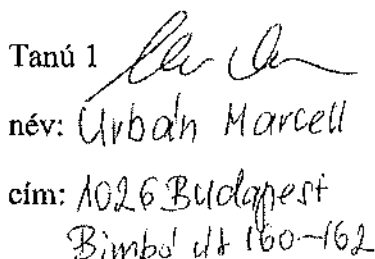 Tanú 1
név: Urbán Marcell
cím: 1026 Budapest
Bimbó út 160-162